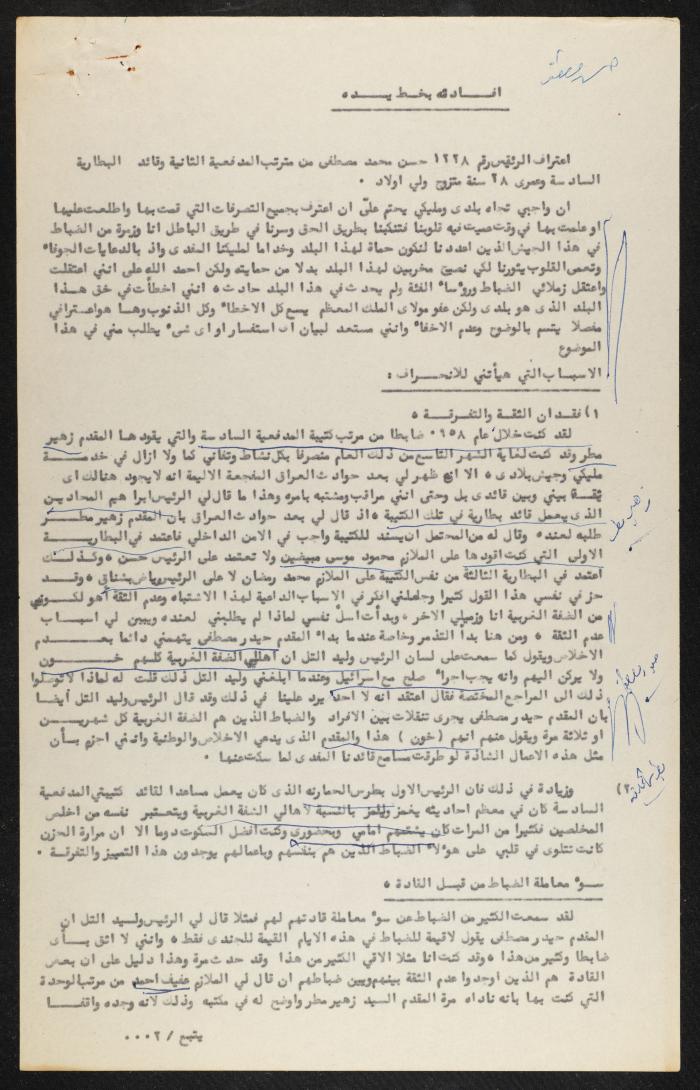 حسن مصطفى
افادته بخط يده
اعتراف الرئيس رقم ١٢٢٨ حسن محمد مصطفى من مترتب المدفعية الثانية وقائد البطارية
السادسة وعمرى ٢٨ سنة متزوج ولي اولاد .
ان واجبي تجاه بلدى ومليكي يحتم علىّ ان اعترف بجميع التصرفات التي قمت بها واطلعت عليها
او علمت بها في وقت عميت فيه قلوبنا فتنكبنا بطريق الحق وسرنا في طريق الباطل انا وزمرة من الضباط
في هذا الجيش الذين اعددنا لنكون حماة لهذا البلد وخداما لمليكنا المفدى واذ بالدعايات الجوفاء
وتعمى القلوب يثورنا لكي نصبح مخربين لهذا البلد بدلا من حمايته ولكن احمد الله على انني اعتقلت
واعتقل زملائي الضباط ورؤساء الفئة ولم يحدث في هذا البلد حادث ه انني اخطأت في حق هذا
البلد الذى هو بلدى ولكن عفو مولاى الملك المعظم يسع كل الاخطاء وكل الذنوب وها هو اعترافي
مفصلا يتسم بالوضوح وعدم الاخفاء وانني مستعد لبيان اى استفسار او اى شىء يطلب مني في هذا
الموضوع
الاسباب التي هيأتني للانحراف :
١) فقدان الثقة والتفرقة ه
لقد كنت خلال عام ٩٥٨ ضابطا من مرتب كتيبة المدفعية السادسة والتي يقودها المقدم زهير
مطر وقد كنت لغاية الشهر التاسع من ذلك العام متصرفا بكل نشاط وتفاني كما ولا ازال في خدمة
مليكي وجيش بلادى ه الا انه ظهر لي بعد حوادث العراق المفجعة الاليمة انه لا يوجد هنالك اى
ثقة بيني وبين قائدى بل وحتى انني مراقب ومشتبه بامره وهذا ما قال لي الرئيس ابراهيم المحاديين
الذى يعمل قائد بطارية في تلك الكتيبة ه اذ قال لي بعد حوادث العراق بان المقدم زهير مطر
طلبه لعنده وقال له من المحتمل ان يسند للكتيبة واجب في الامن الداخلي فاعتمد في البطارية
الاولى التي كنت اقودها على الملازم محمود موسى مبيضين ولا تعتمد على الرئيس حسن ه وكذلك
اعتمد في البطارية الثالثة من نفس الكتيبة على الملازم محمد رمضان لا على الرئيس رياض بشناق ه وقد
حز في نفسي هذا القول كثيرا وجعلني افكر في الاسباب الداعية لهذا الاشتباه وعدم الثقة أهو لكوني
من الضفة الغربية انا وزميلي الاخر ه وبدأت اسأل نفسي لماذا لم يطلبني لعنده ويبين لي اسباب
عدم الثقة ه ومن هنا بدا التذمر وخاصة عندما بداء المقدم حيدر مصطفى يتهمني دائما بعدم
الاخلاص ويقول كما سمعت على لسان الرئيس وليد التل ان اهالي الضفة الغربية كلهم خون
ولا يركن اليهم وانه يجب اجراء صلح مع اسرائيل وعندما ابلغني وليد التل ذلك قلت له لماذا لا توصلوا
ذلك الى المراجع المختصة فقال اعتقد انه لا احد يرد علينا في ذلك وقد قال الرئيس وليد التل ايضا
بان المقدم حيدر مصطفى يجرى تنقلات بين الافراد والضباط الذين هم الضفة الغربية كل شهرين
او ثلاثة مرة ويقول عنهم انهم ( خون ) هذا والمقدم الذى يدعي الاخلاص والوطنية وانني اجزم بأن
مثل هذه الاعمال الشاذة لو طرقت مسامع قائدنا المفدى لما سكت عنها .
٢) وزيادة في ذلك فان الرئيس الاول بطرس الحمارنه الذى كان يعمل مساعدا لقائد كتيبتي المدفعية
السادسة كان في معظم احاديثه يغمز ويلمز بالنسبة لاهالي الضفة الغربية ويتعتبر نفسه من اخلص
المخلصين فكثيرا من المرات كان يشتمهم امامي وبحضورى وكنت افضل السكوت دوما الا ان مرارة الحزن
كانت تتلوى في قلبي على هؤلاء الضباط الذين هم بنفسهم وباعمالهم يوجدون هذا التمييز والتفرقة .
سوء معاملة الضباط من قبل القادة ه
لقد سمعت الكثير من الضباط عن سوء معاملة قادتهم لهم فمثلا قال لي الرئيس وليد التل ان
المقدم حيدر مصطفى يقول لا قيمة للضباط في هذه الايام القيمة للجندى فقط ه وانني لا اثق بأى
ضابط وكثير من هذا ه وقد كنت انا مثلا الاقي الكثير من هذا وقد حدث مرة وهذا دليل على ان بعض
القادة هم الذين اوجدوا عدم الثقة بينهم وبين ضباطهم ان قال لي الملازم عفيف احمد من مرتب الوحدة
التي كنت بها بانه ناداه مرة المقدم السيد زهير مطر واوضح له في مكتبه وذلك لانه وجده واقفا
زهير مطر
حيدر مصطفى
بطرس الحمارنه
يتبع / ٠٠٠٢